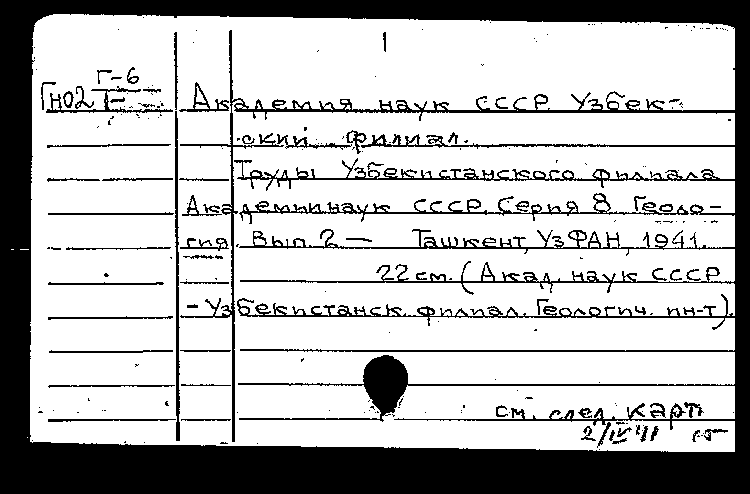 Г-6
Гн02 Т-
Академия наук СССР. Узбек-
ский филиал.
Труды Узбекистанского филиала
Академии наук СССР. Серия 8 Геоло-
гия. Вып. 2 — Ташкент, УзФАН, 1941.
22 см. (Акад. наук СССР
- Узбекистанск. филиал. Геологич. ин-т).
см. след. карт
2/IV 41